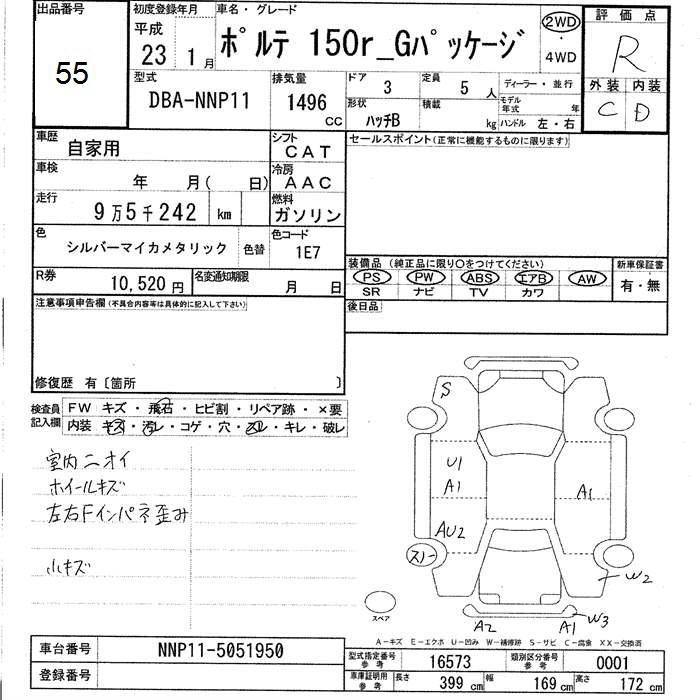 出品番号
55
初度登録年月
平成
23 1月
車名・グレード
ポルテ 150r_Gパッケージ
2WD
・
4WD
評価点
R
外装 内装
C D
型式
DBA-NNP11
排気量
1496
CC
ドア 3
定員 5 人
ディーラー・並行
形状
ハッチB
積載
kg
モデル
年式 年
ハンドル 左・右
車歴
自家用
シフト
CAT
セールスポイント(正常に機能するものに限ります)
車検
年 月( 日)
冷房
AAC
走行
9万5千242 km
燃料
ガソリン
色
シルバーマイカメタリック
色替
色コード
1E7
装備品 (純正品に限り○をつけてください)
新車保証書
PS PW ABS エアB AW
SR ナビ TV カワ
有・無
R券
10,520 円
名変通知期限
月 日
後日品
注意事項申告欄(不具合内容等は具体的に記入して下さい)
修復歴 有〔箇所 〕
検査員
記入欄
FW キズ・飛石・ヒビ割・リペア跡・×要
内装 キズ・汚レ・コゲ・穴・スレ・キレ・破レ
室内ニオイ
ホイールキズ
左右Fインパネ歪み
小キズ
S
U1
A1
A1
AU2
スノー
W2
W3
A2
A1
スペア
A-キズ E-エクボ U-凹み W-補修跡 S-サビ C-腐食 XX-交換済
車台番号
NNP11-5051950
登録番号
型式指定番号
参考
16573
類別区分番号
参考
0001
車庫証明用
参考
長さ 399 cm
幅 169 cm
高さ 172 cm